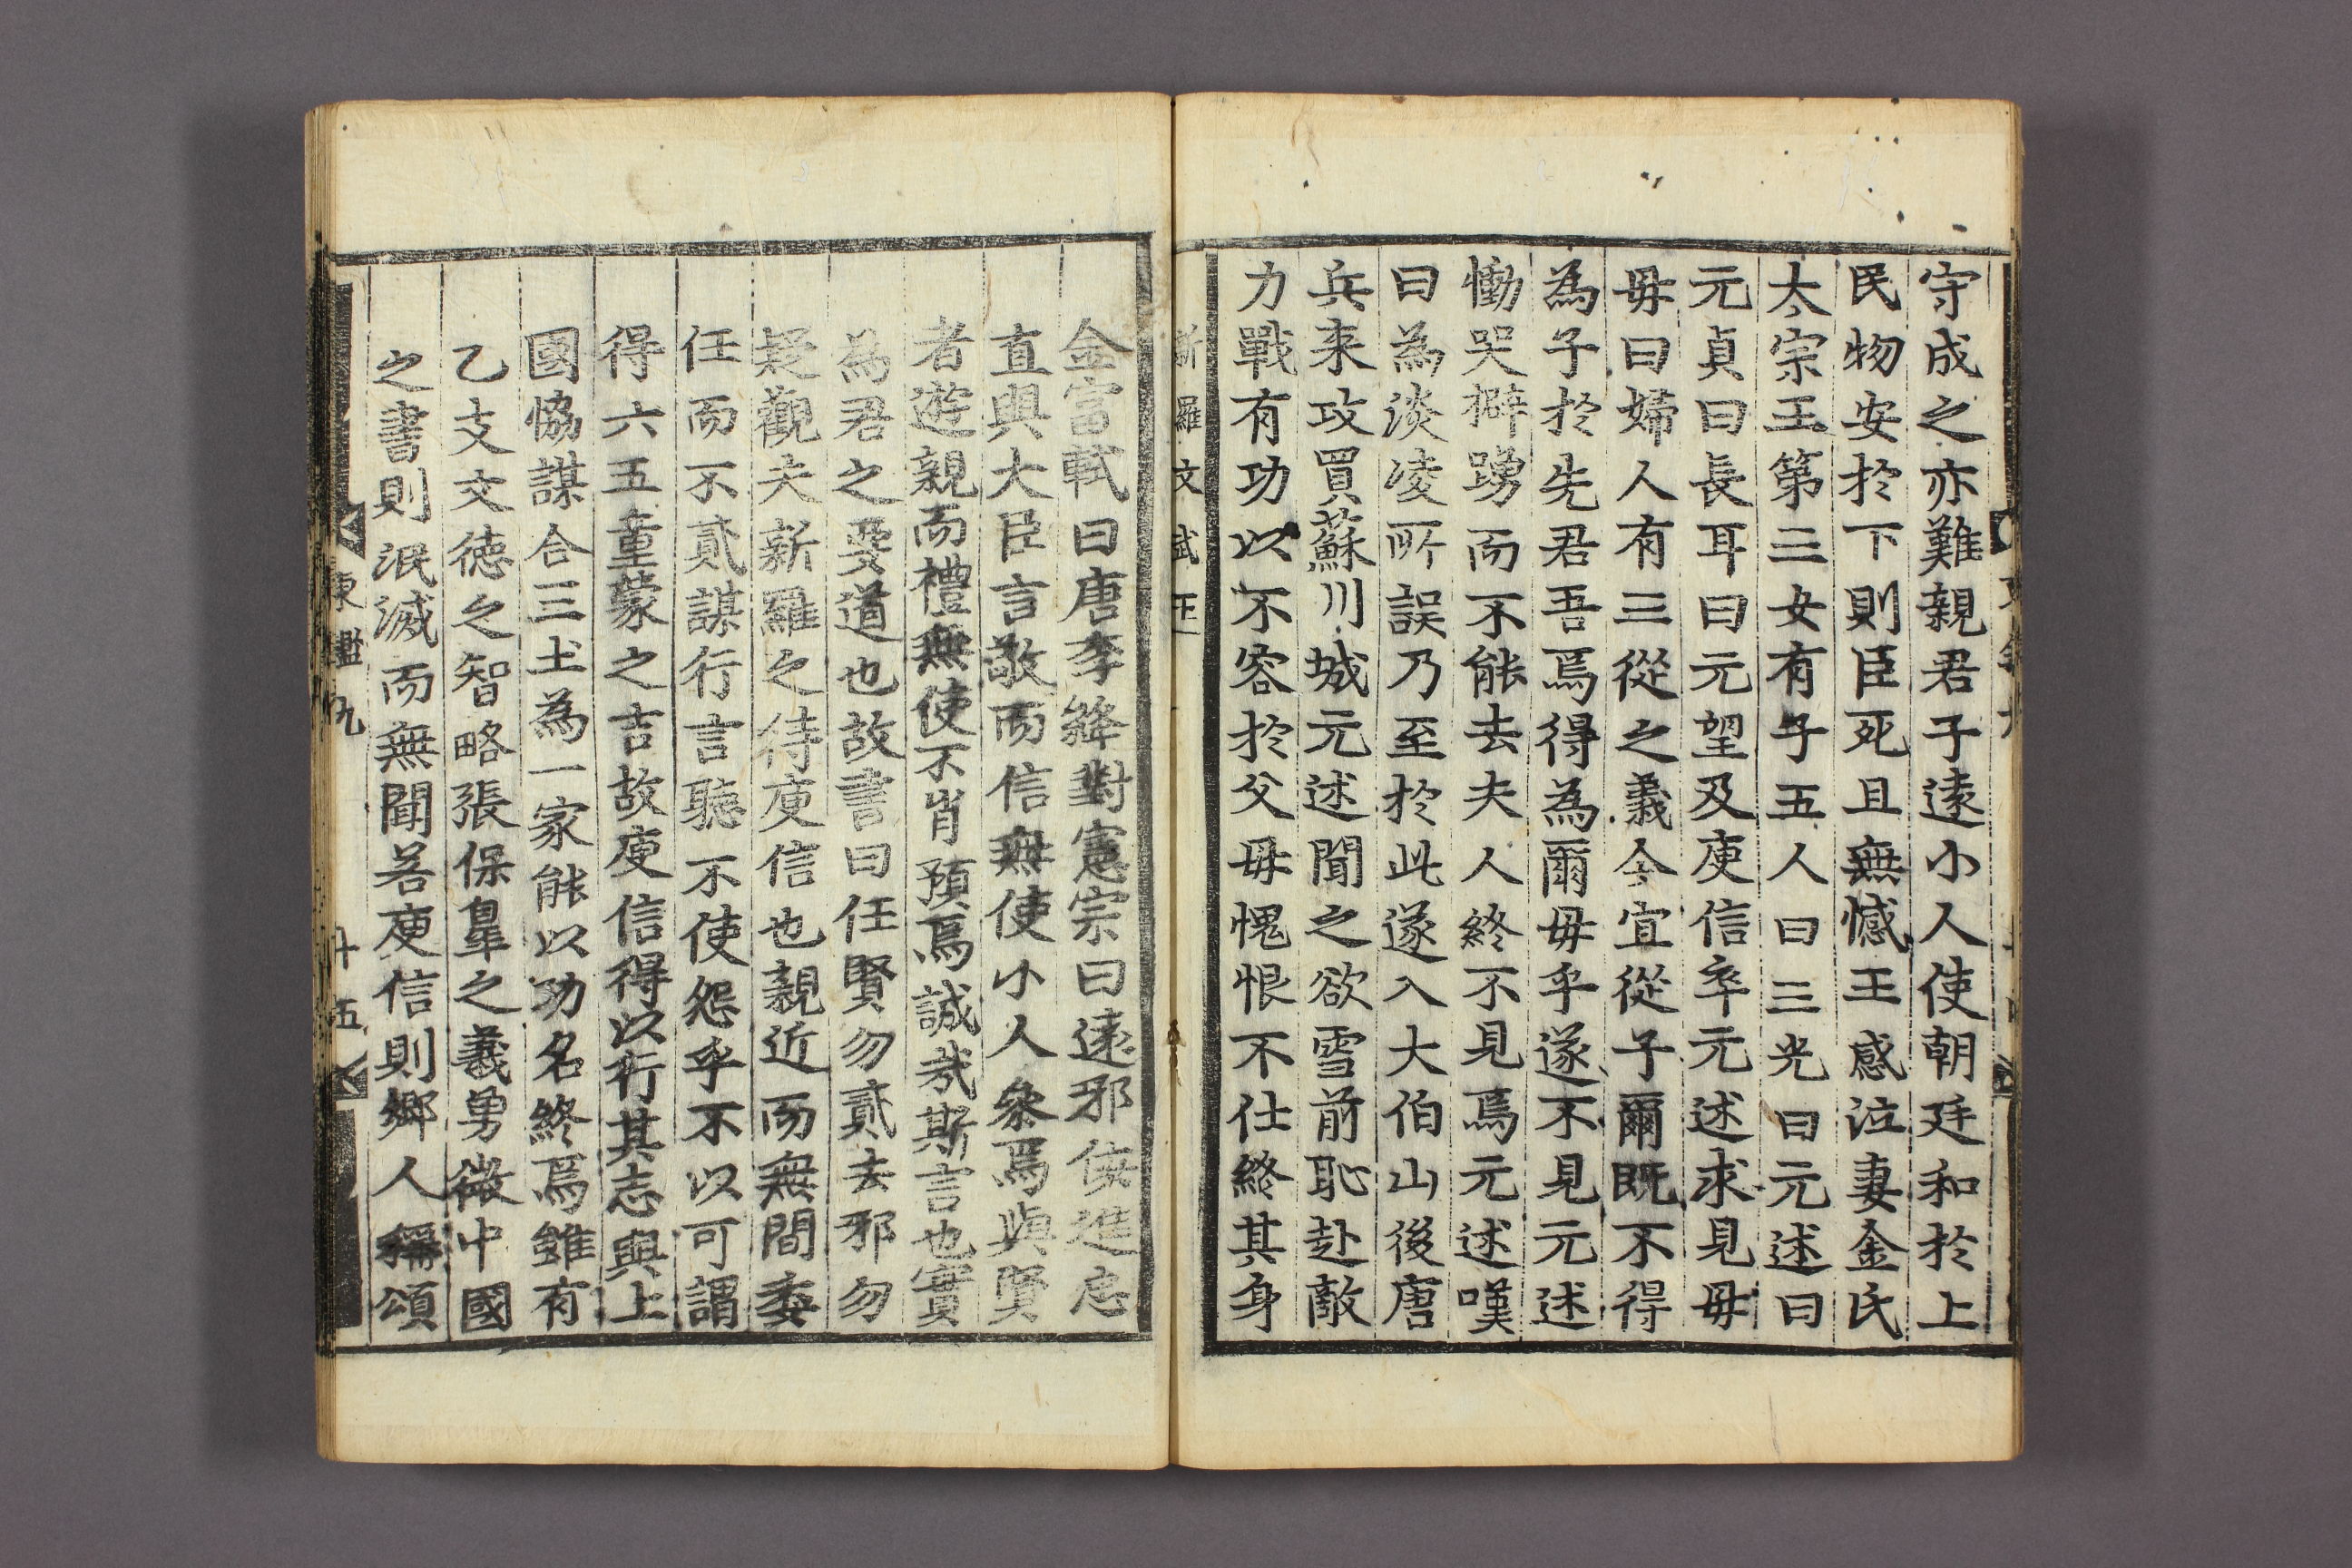 守成之亦難親君子遠小人使朝廷和於上
民物安於下則臣死且無憾王感泣妻金氏
太宗王第三女有子五人曰三光曰元述曰
元貞曰長耳曰元望及庾信卒元述求見毋
毋曰婦人有三從之義今宜從子爾既不得
為子於先君吾焉得為爾毋乎遂不見元述
慟哭擗踴而不能去夫人終不見焉元述嘆
曰為淡凌所誤乃至於此遂入大伯山後唐
兵来攻買蘇川城元述聞之欲雪前恥赴敵
力戰有功以不容於父毋愧恨不仕終其身
新羅文武王
金富軾曰唐李絳對憲宗曰遠邪佞進忠
直與大臣言敬而信無使小人叅焉與賢
者遊親而禮無使不肖預焉誠㦲斯言也實
為君之要道也故書曰任賢勿貳去邪勿
疑觀夫新羅之待庾信也親近而無間委
任而不貳謀行言聽不使怨乎不以可謂
得六五童蒙之吉故庾信得以行其志與上
國恊謀合三土為一家能以功名終焉雖有
乙支文德之智略張保皐之義勇微中國
之書則泯滅而無聞若庾信則鄉人稱頌
東鑑九
十五